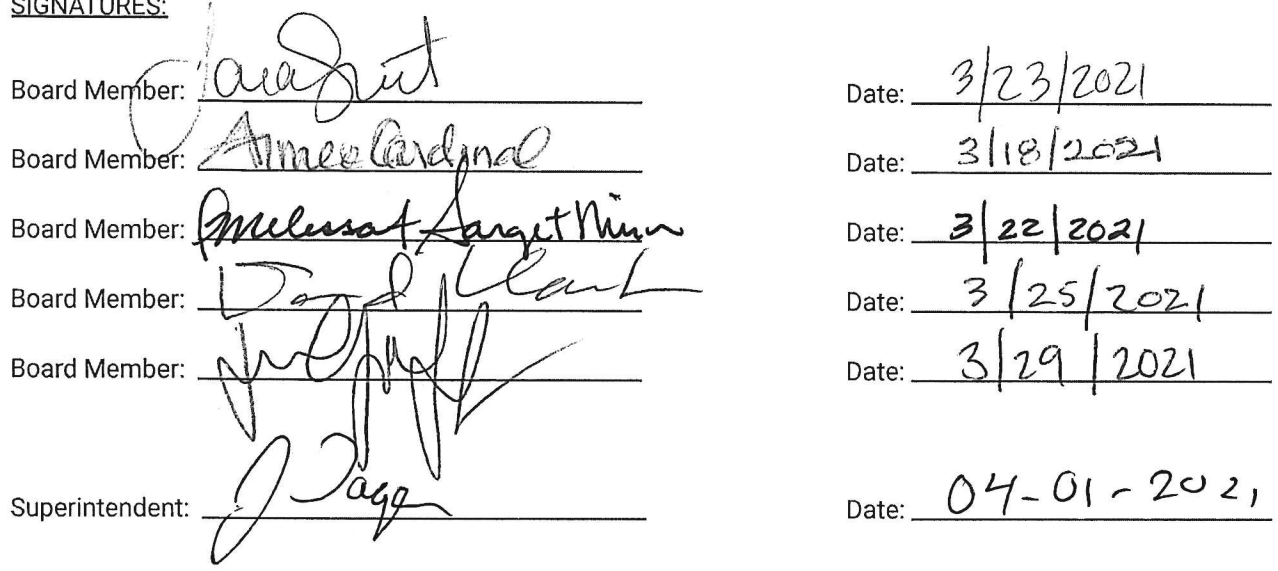 SIGNATURES:
Board Member: Date: 3/23/2021
Board Member: Aimee Cardinal Date: 3/18/2021
Board Member: Date: 3/22/2021
Board Member: Date: 3/25/2021
Board Member: Date: 3/29/2021
Superintendent: J Date: 04-01-2021